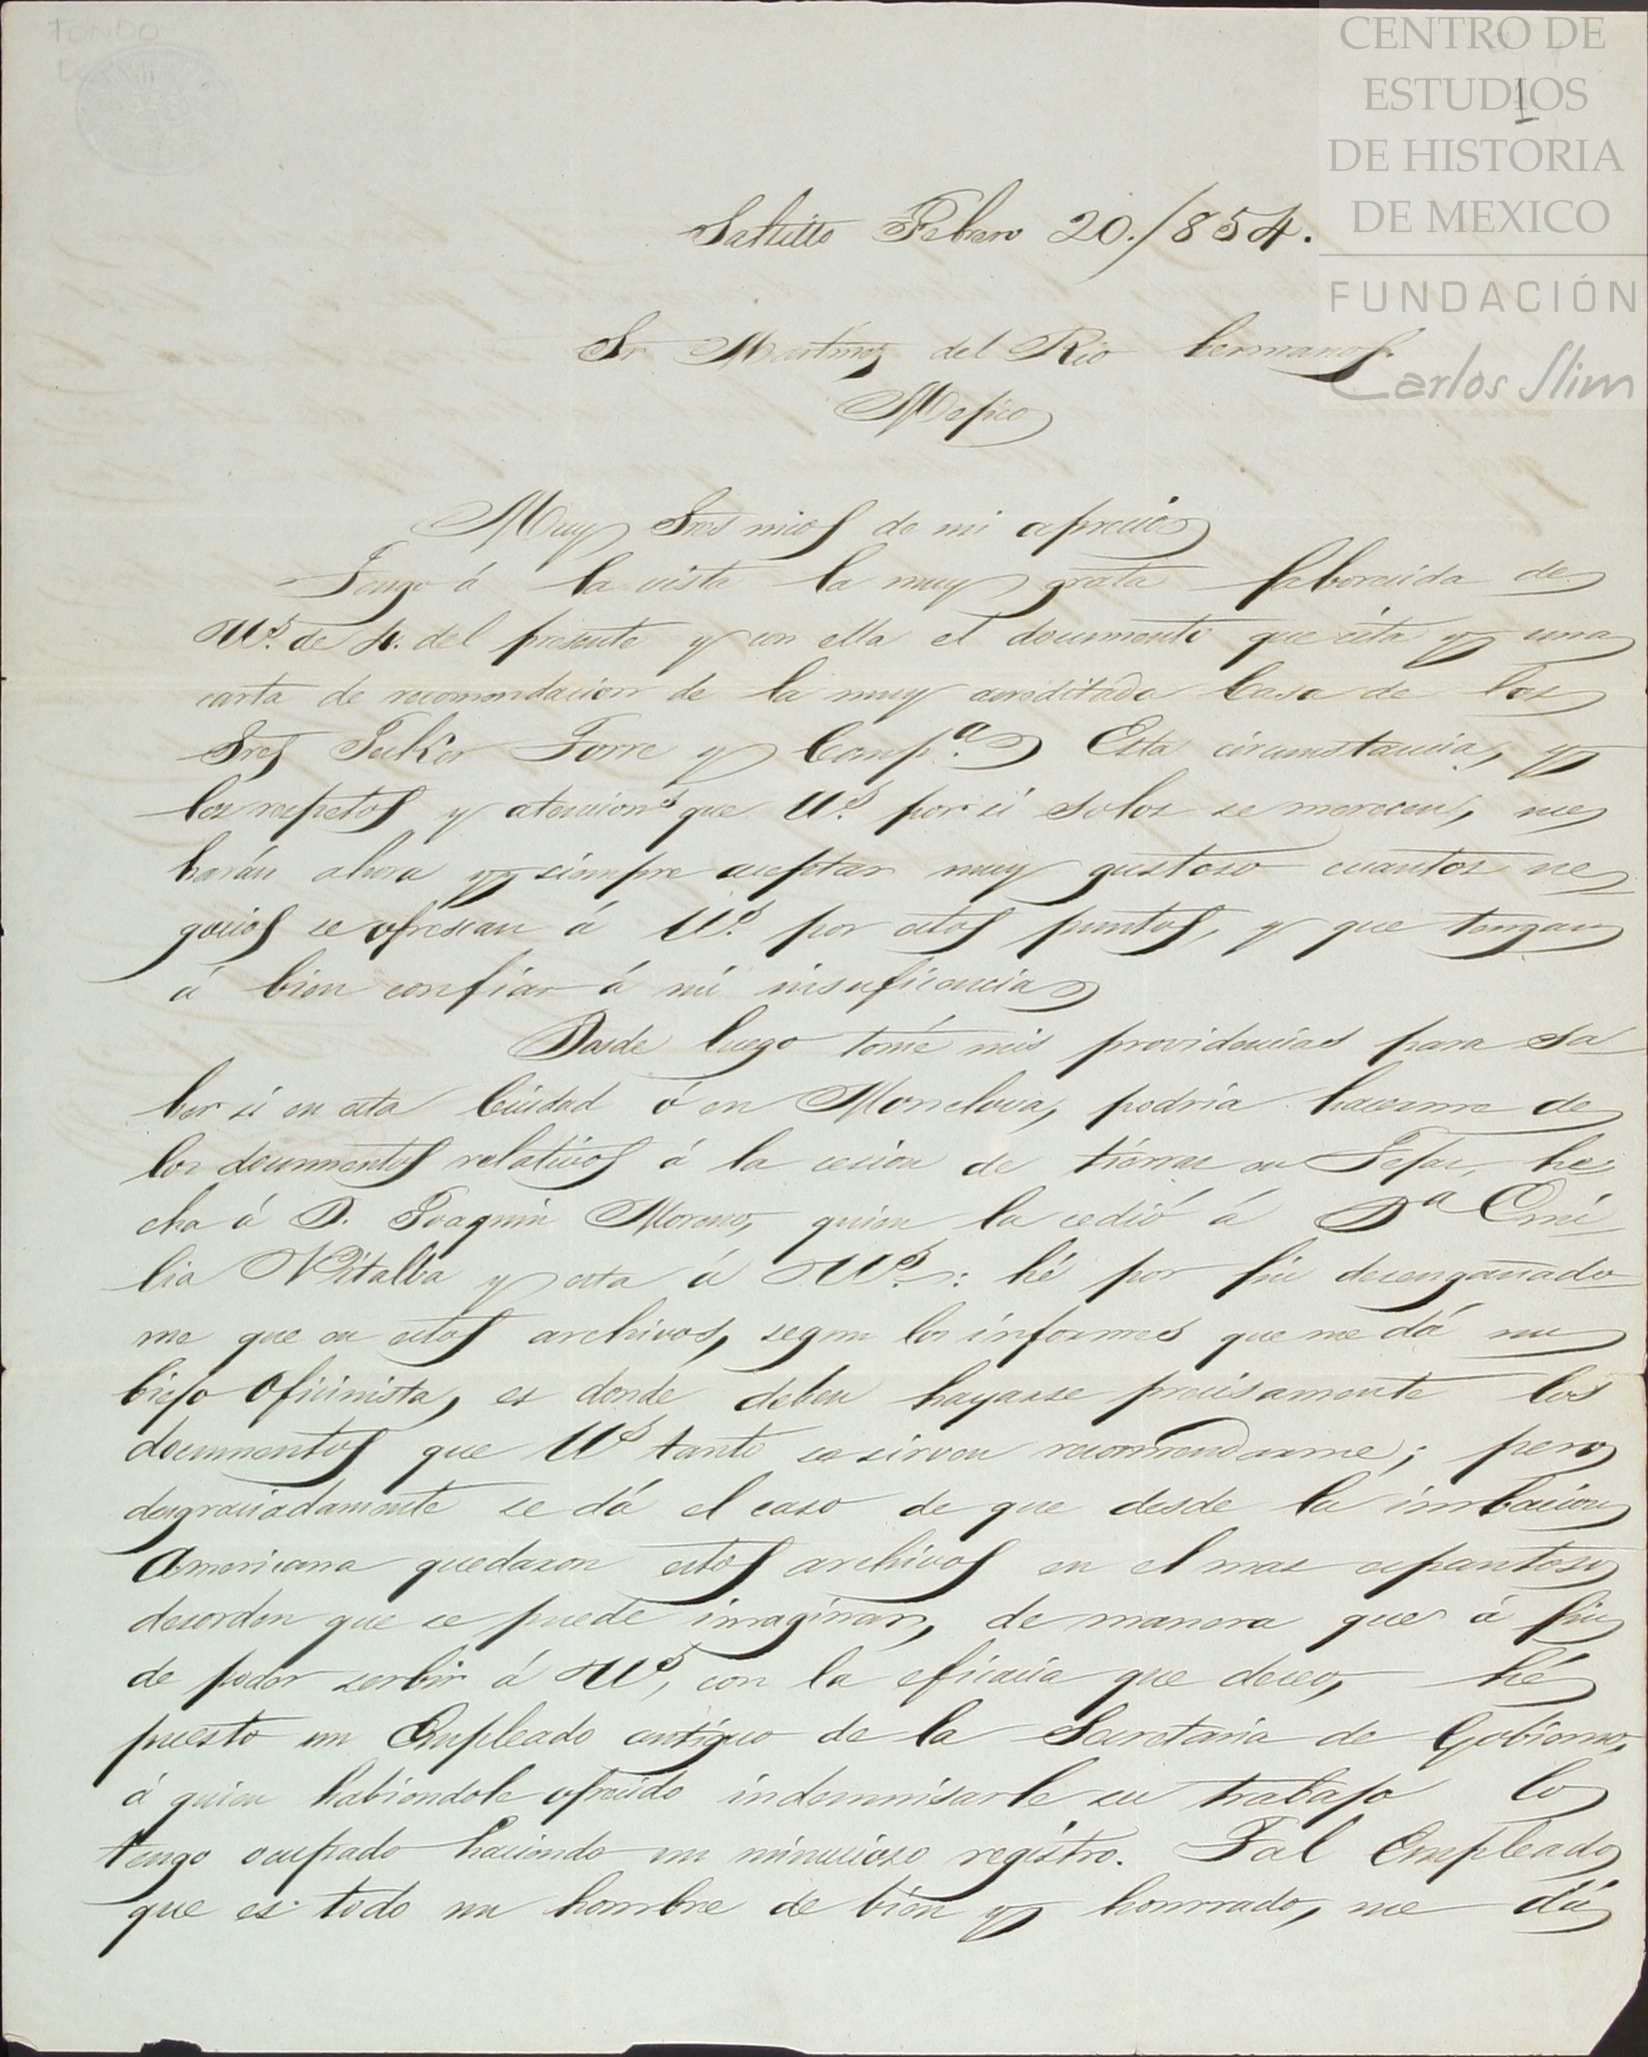 FONDO
CENTRO DE
ESTUDIOS
DE HISTORIA
DE MEXICO
FUNDACIÓN
Carlos Slim
1
Saltillo Febrero 20./854.
Sr Martinez del Rio hermanos.
Mejico
Muy Sres mios de mi aprecio
Tengo á la vista la muy grata faborecida de
Us. de 4. del presente y con ella el documento que cita y una
carta de recomendacion de la muy acreditada Casa de los
Sres Tecker Torre y Compa. Esta circunstancia, y
los respetos y atencions que Us. por si solos se merecen, me
harán ahora y siempre aceptar muy gustoso cuantos ne
gocios se ofrescan á Us. por estos puntos, y que tengan
á bien confiar á mi insuficiencia
Desde luego tomé mis providencias para sa
ber si en esta Ciudad ó en Monclova, podria hacerme de
los documentos relativos á la cecion de tierras en Tejas, he
cha á D. Joaquin Moreno, quien la cedió á Da Emi
lia Vitalba y esta á Us.: hé por fin desengañado
me que en estos archivos, segun los informes que me dá un
biejo Oficinista, es donde deben hayarse precisamente los
documentos que Us tanto se sirven recomendarme; pero
desgraciadamente se dá el caso de que desde la imbacion
Americana quedaron estos archivos en el mas espantoso
desorden que se puede imaginar, de manera que á fin
de poder serbir á Us, con la eficacia que deceo, hé
puesto un Empleado antiguo de la Secretaria de Gobierno,
á quien habiendole ofrecido indemnisarle su trabajo lo
tengo ocupado haciendo un minucioso registro. Tal Empleado
que es todo un hombre de bien y honrrado, me dá